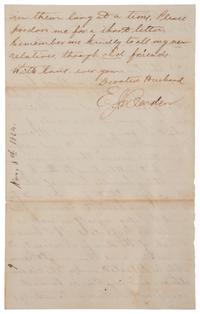 in them long at a time. Please
pardon me for a short letter
Remember me kindly to all my new
relatives, though old friends
With love ever your
Devoted Husband
Nov. 8th 1864.